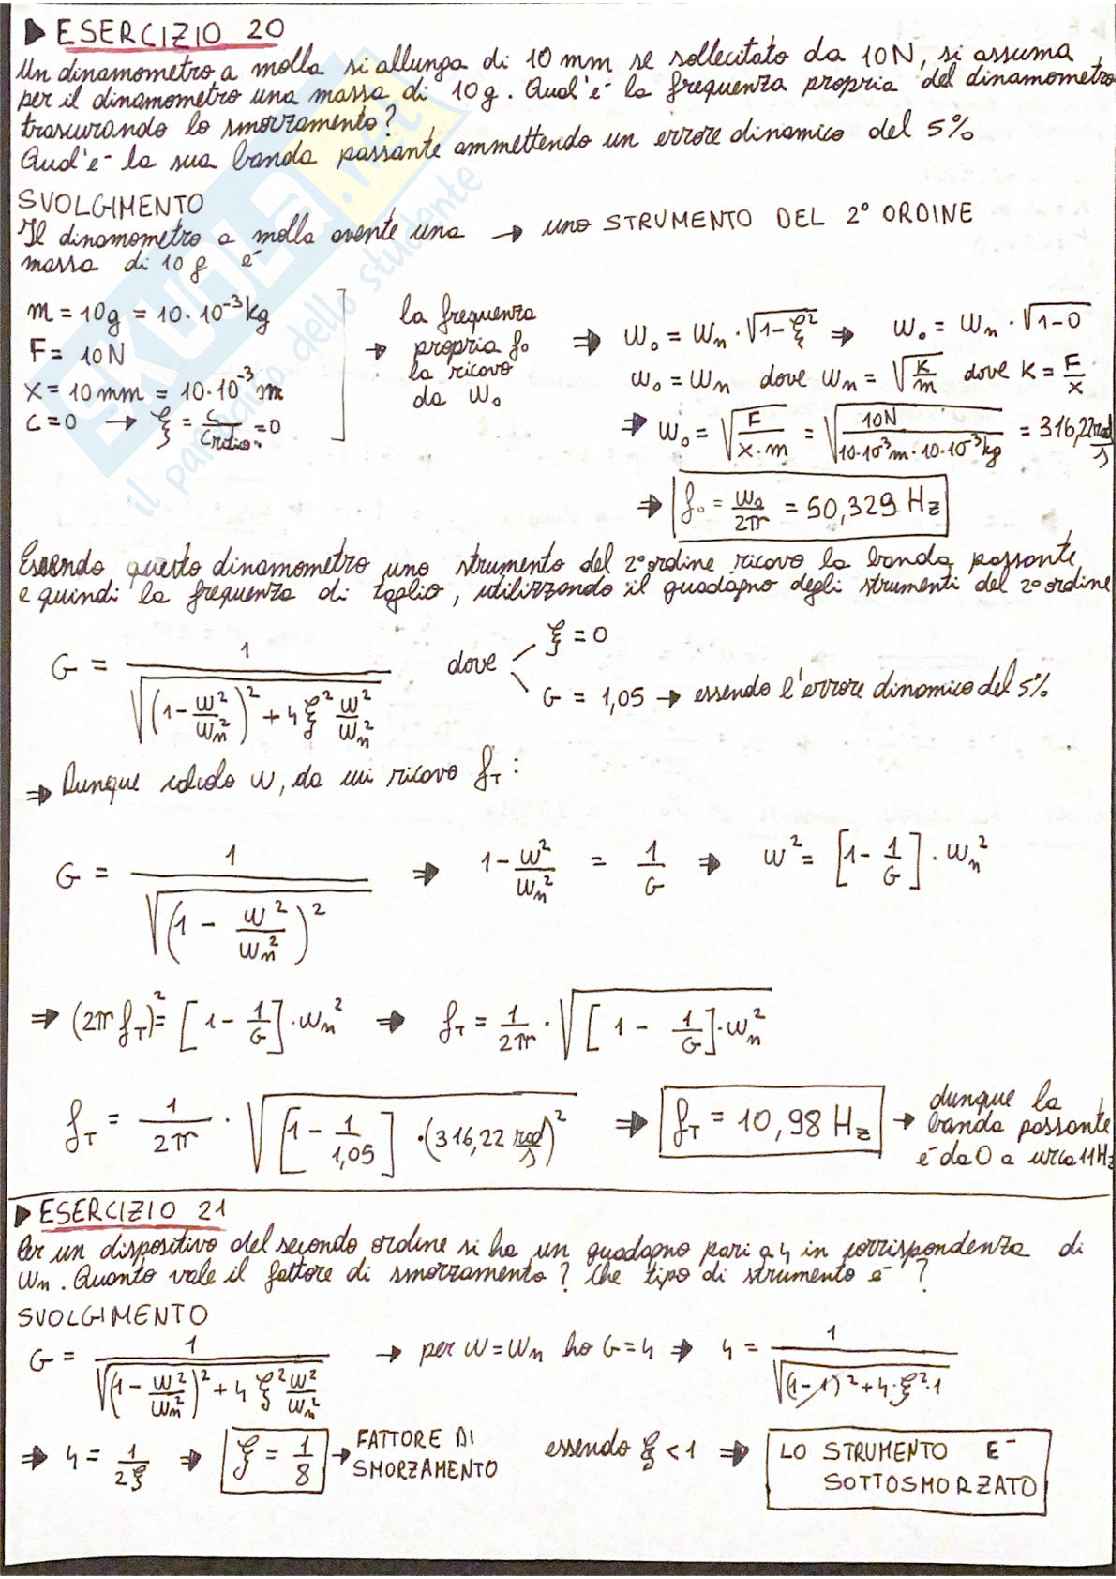 ▶ ESERCIZIO 20
Un dinamometro a molla si allunga di 10 mm se sollecitato da 10N, si assuma
per il dinamometro una massa di 10g. Qual'è la frequenza propria del dinamometro
trascurando lo smorzamento?
Qual'è la sua banda passante ammettendo un errore dinamico del 5%
SVOLGIMENTO
Il dinamometro a molla avente una → uno STRUMENTO DEL 2° ORDINE
massa di 10 g è
m = 10g = 10·10⁻³kg
F = 10N
X = 10mm = 10·10⁻³ m
C=0 → ξ = C/Ccritico = 0
→ la frequenza
propria f₀
la ricavo
da ω₀
⇒ ω₀ = ωn·√(1-ξ²) ⇒ ω₀ = ωn·√(1-0)
ω₀ = ωn dove ωn = √(K/m) dove K = F/X
⇒ ω₀ = √(F/(X·m)) = √(10N/(10·10⁻³m·10·10⁻³kg)) = 316,22 rad/s
⇒ f₀ = ω₀/2π = 50,329 Hz
Essendo questo dinamometro uno strumento del 2° ordine ricavo la banda passante
e quindi la frequenza di taglio, utilizzando il guadagno degli strumenti del 2° ordine
G = 1/√((1-ω²/ωn²)²+4ξ²ω²/ωn²) dove ξ = 0
G = 1,05 → essendo l'errore dinamico del 5%
⇒ Dunque calcolo ω, da cui ricavo fT:
G = 1/√((1-ω²/ωn²)²) ⇒ 1-ω²/ωn² = 1/G ⇒ ω² = [1-1/G]·ωn²
⇒ (2π fT)² = [1-1/G]·ωn² ⇒ fT = 1/2π·√([1-1/G]·ωn²)
fT = 1/2π·√([1-1/1,05]·(316,22 rad/s)²) ⇒ fT = 10,98 Hz → dunque la
banda passante
è da 0 a circa 11Hz
▶ ESERCIZIO 21
Per un dispositivo del secondo ordine si ha un guadagno pari a 4 in corrispondenza di
ωn. Quanto vale il fattore di smorzamento? Che tipo di strumento è?
SVOLGIMENTO
G = 1/√((1-ω²/ωn²)²+4ξ²ω²/ωn²) → per ω=ωn ho G=4 ⇒ 4 = 1/√((1-1)²+4·ξ²·1)
⇒ 4 = 1/2ξ ⇒ ξ = 1/8 → FATTORE DI
SMORZAMENTO
essendo ξ<1 ⇒ LO STRUMENTO E-
SOTTOSMORZATO
SKUOLA.net
il paradiso dello studente